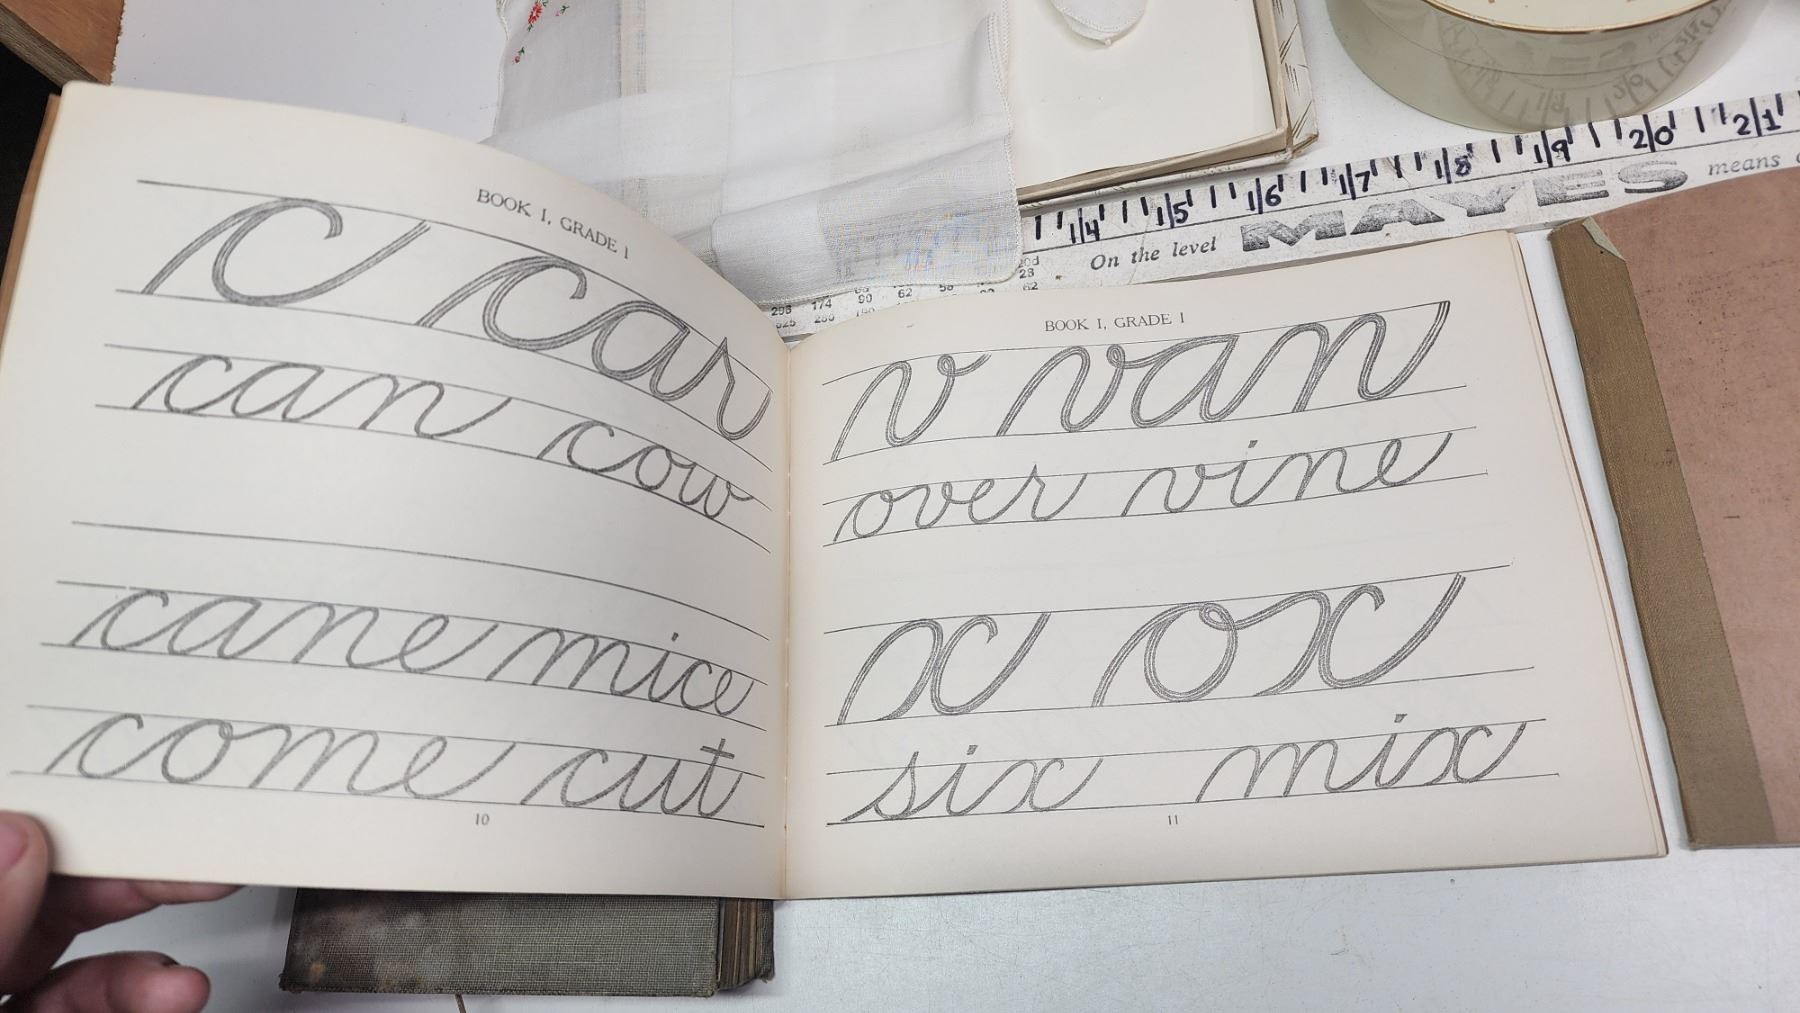 BOOK I, GRADE 1
c car
can cow
cane mice
come cut
10
BOOK I, GRADE 1
v van
over vine
x ox
six mix
11
14 15 16 17 18 19 20 21
On the level MAYES means
28
62
174 90 62
280